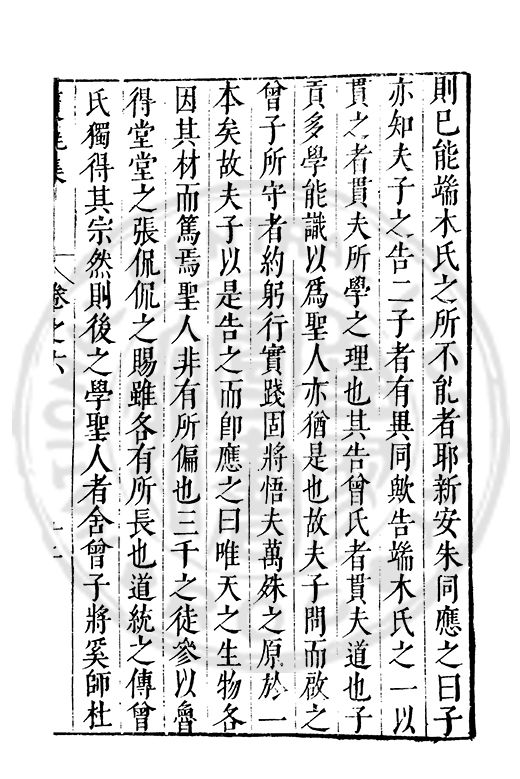 則已能端木氏之所不能者耶新安朱同應之曰子
亦知夫子之告二子者有異同歟告端木氏之一以
貫之者貫夫所學之理也其告曾氏者貫夫道也子
貢多學能識以爲聖人亦猶是也故夫子問而啟之
曾子所守者約躬行實踐固將悟夫萬殊之原於一
本矣故夫子以是告之而卽應之曰唯天之生物各
因其材而篤焉聖人非有所偏也三千之徒參以魯
得堂堂之張侃侃之賜雖各有所長也道統之傳曾
氏獨得其宗然則後之學聖人者舍曾子將奚師杜
集 卷之六